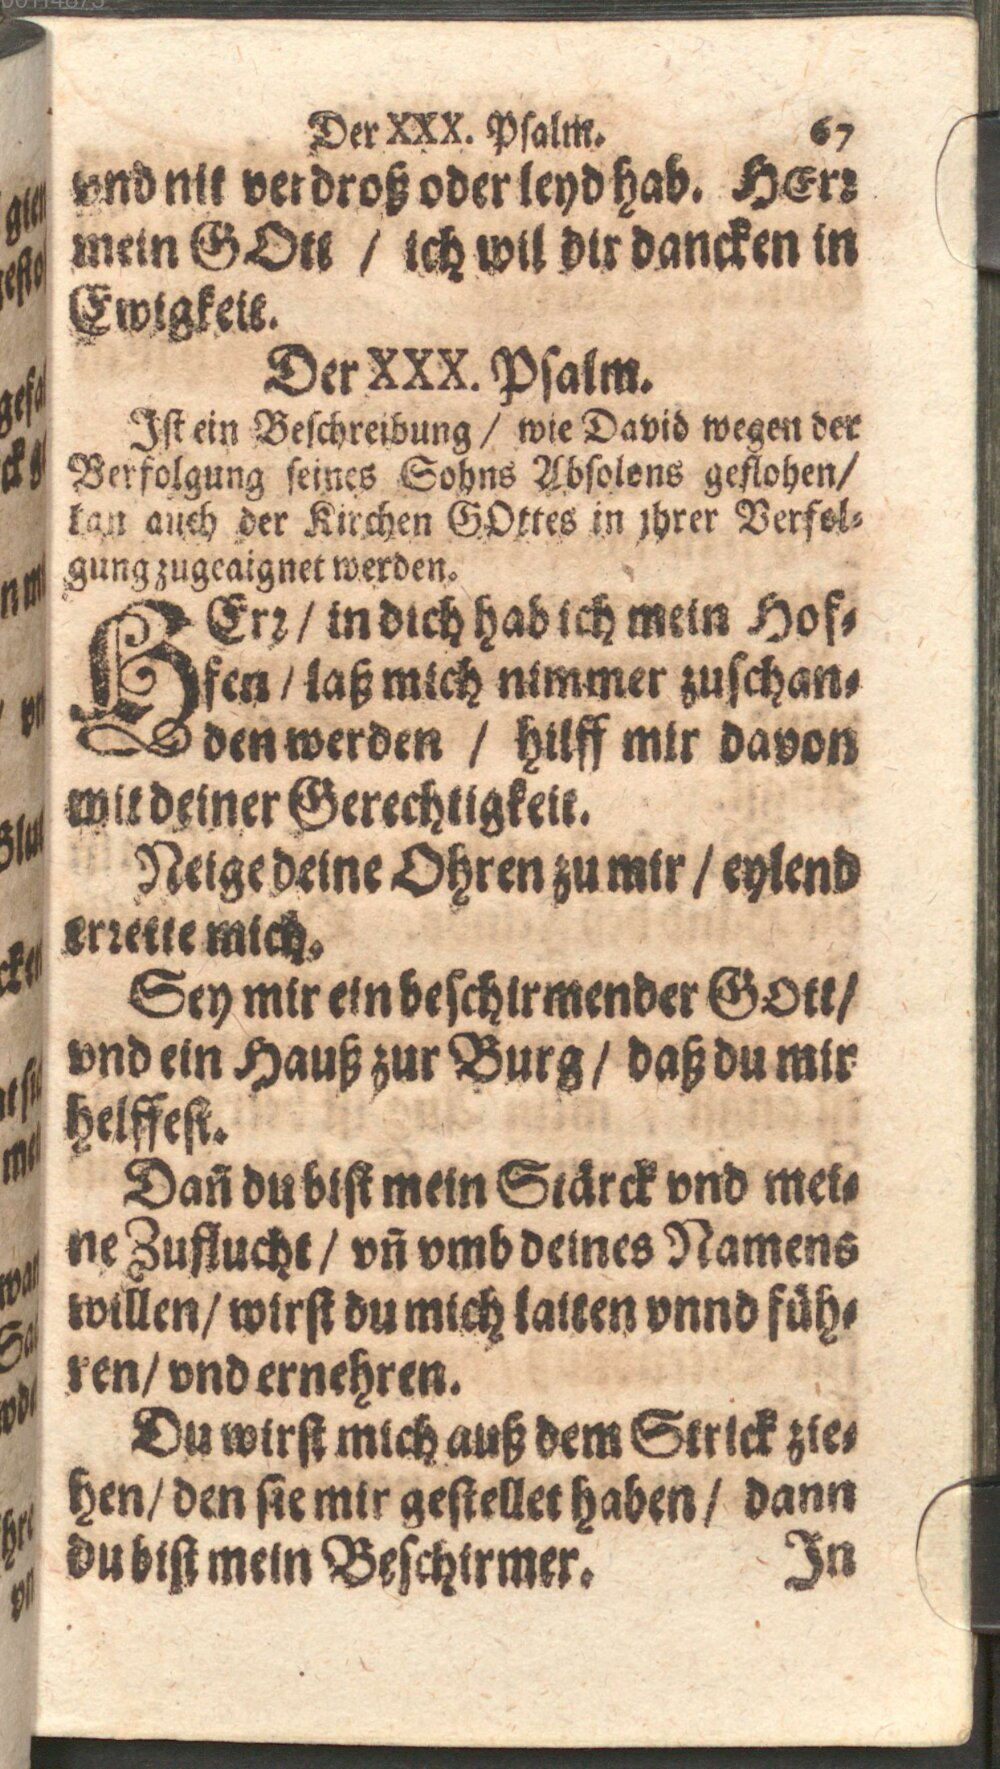 Der XXX. Psalm. 67
vnd nit verdroß oder leyd hab. HErꝛ
mein GOtt / ich wil dir dancken in
Ewigkeit.
Der XXX. Psalm.
Ist ein Beschreibung / wie David wegen der
Verfolgung seines Sohns Absolons geflohen/
kan auch der Kirchen GOttes in jhrer Verfol-
gung zugeaignet werden.
HErꝛ / in dich hab ich mein Hof-
fen / laß mich nimmer zuschan-
den werden / hilff mir davon
mit deiner Gerechtigkeit.
Neige deine Ohren zu mir / eylend
erꝛette mich.
Sey mir ein beschirmender GOtt/
vnd ein Hauß zur Burg / daß du mir
helffest.
Dañ du bist mein Stärck vnd mei-
ne Zuflucht / vñ vmb deines Namens
willen / wirst du mich laiten vnnd füh-
ren / vnd ernehren.
Du wirst mich auß dem Strick zie-
hen / den sie mir gestellet haben / dann
du bist mein Beschirmer. In